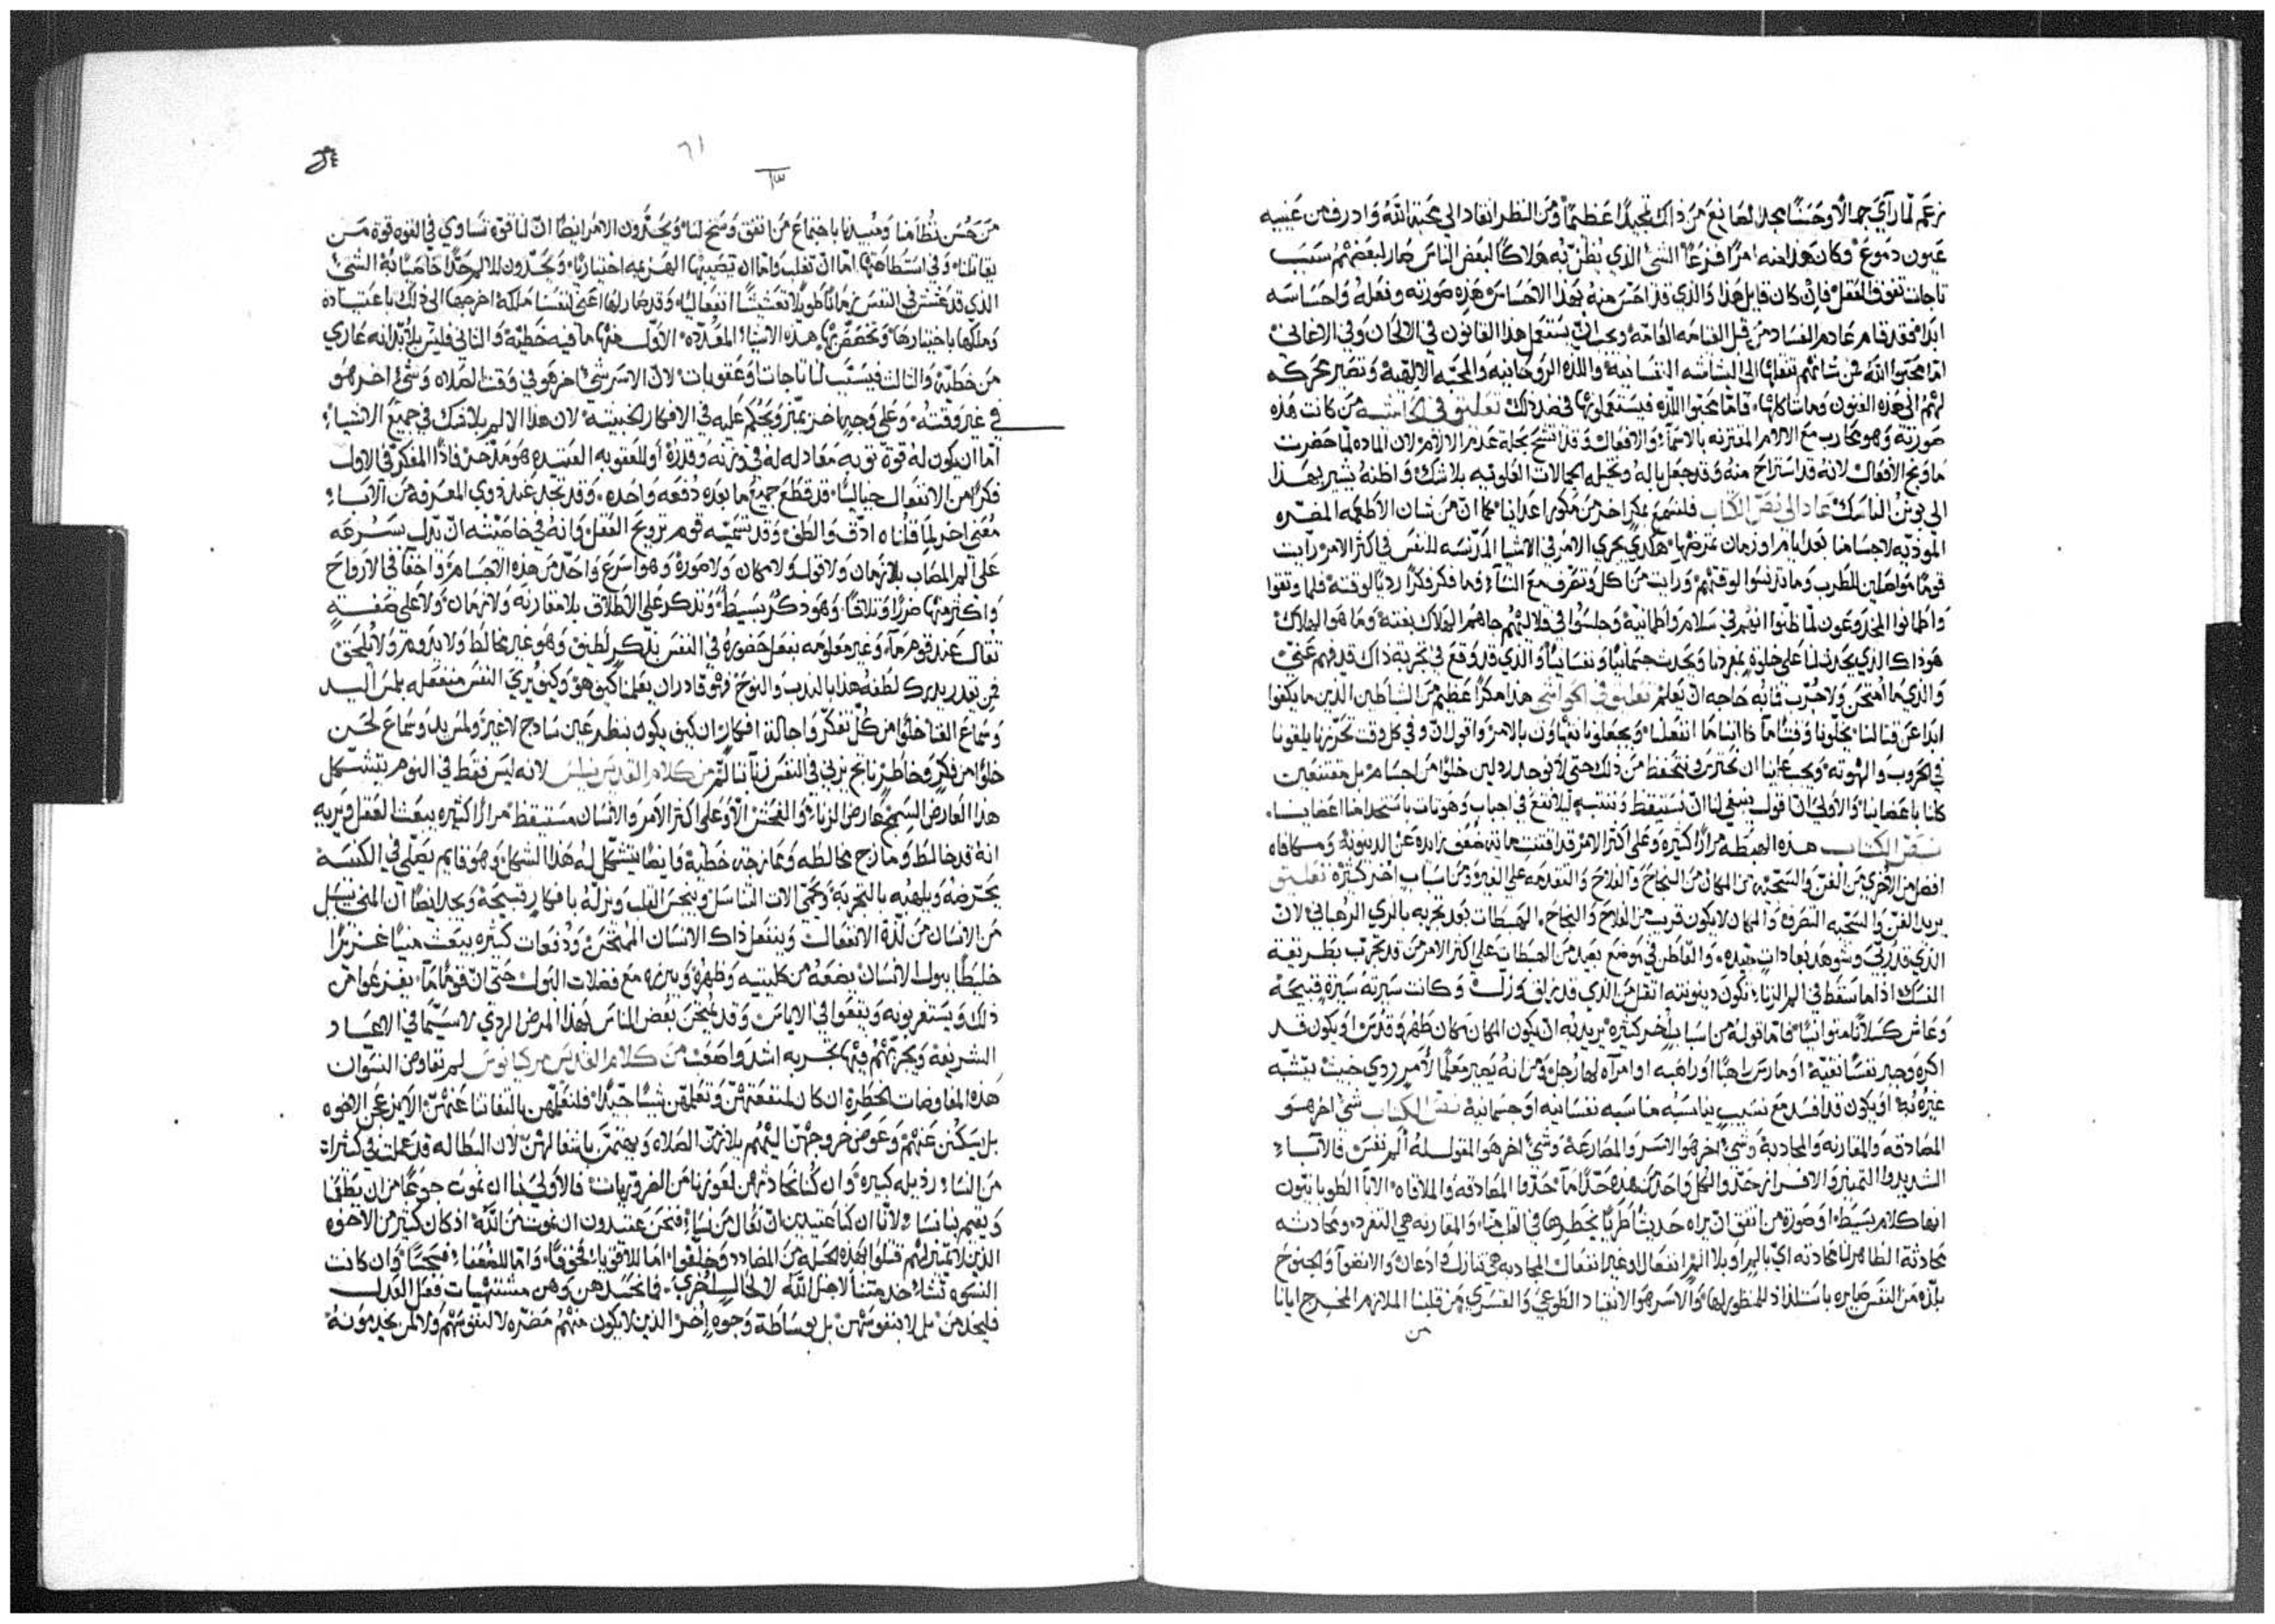 زعم لما رآي جمالاً وحسناً مجد الصانع من ذاك تمجيداً عظيماً ومن النظر انقاد الي محبة الله وادرف من عينيه
عيون دموع وكان هذا منه امراً مفزعاً الشي الذي يُظن به هلاكاً لبعض الناس صار لبعضهم سبب
تاجات تفوق العقل فإن كان قايل هذا والذي قد احس منه بهذا الاحساس هذه صورته وفعله واحساسه
ابدا فقد قام عادم الفساد من قبل القيامه العامة ويجب ان يستعمل هذا القانون في الالحان وفي الاغاني
اما محبوا الله فمن شانهم تنقلها الى البشاشه النفسانية واللذه الروحانيه والمحبه الالهية وتصير حركه
لهم الى هذه الفنون وما شاكلها فاما محبوا اللذه فيستعملونها في ضد ذلك تعليق في الحاشيه من كانت هذه
صورته وهو يحارب مع الالام المقترنه بالاسماء والافعال وقد اتشح بحلة عدم الالام لان الماده لما حضرت
ما ونج الافعال لانه قد استراح منه وقد جعل باله وتخيله الجمالات العلويه بلا شك واظنه يشير بهذا
الي نونس الناسك عاد الى نص الكتاب فلنسمع مكراً اخر من مكور اعداينا كما ان من شان الاطعمه المضره
الموذيه لاجسامنا بعد ايام او زمان تمرضها هكدي يجري الامر في الاشيا المدنسه للنفس في اكثر الامر رايت
قوماً مواصلين للطرب وما تدنسوا لوقتهم ورايت من اكل وتصرف مع النساء وما فكر فكراً ردياً لوقته فلما وثقوا
واطمانوا المخدوعون لما ظنوا انهم في سلام وطمانية وجلسوا في قلاليهم جاهم الهلاك بغتة وما هو الهلاك
هو ذاك الذي يحدث لنا على خلوة بمفردنا ويحدث جسمانياً ونفسانياً والذي قد وقع في تجربة ذاك قد فهم عني
والذي ما امتحن ولا جُرب فما به حاجه ان يعلم تعليق في الحواشي هذا مكراً عظيم من الشياطين الدين ما يكفوا
ابدا عن قتالنا يخلونا وقتاً ما اذا اننا ما انفعلنا ويجعلونا نتهاون بالامر واقول ان وفي كل وقت تحرزنا يلقونا
في الحروب والهوته ويجب علينا ان نحترس ونتحفظ من ذلك حتي لا نوجد رذلين خلوا من اجسام بل مقتنعين
كلنا باعضاينا والاولي ان اقول ينبغي لنا ان نستيقظ وننتبه ليلا نقع في اجباب وهوتات باستخدامنا اعضاينا
نص الكتاب هذه الهبطة مراراً كثيرة وعلى اكثر الامر قد اقتنت مهانه ضعف زايده عن الدينونة ومكافاه
افضل من الاخري من الفن والسجيه من المكان من النجاح والفلاح والتقدمه على الغير ومن اسباب اخر كثيرة تعليق
يريد الفن والسجيه التصرف والمكان لا يكون قريب من الفلاح والنجاح الهبطات بعد تجربه بالري الرهباني لان
الذي قد رُبّي وشوهد بعادات جيده والقاطن في موضع بعيد من الهبطات على اكثر الامر من قد تجرب بطريقة
النسك اذا ما سقط في الم الزنا تكون دينونته اثقل من الذي قد زلق وزل وكانت سيرته سيرة قبيحة
وعاش كسلاناً متوانياً فاما قوله من اسباب اخر كثيره يريد به ان يكون المكان مكان طهر وقدس او يكون قد
اكره وجبر نفساً نقية او مارس راهباً او راهبه او امرآه لها رجل ومن انه يصير معلماً لأمر ردي خبيث يتشبه
غيره به او يكون قد افسد مع نسيب يناسبه مناسبه نفسانيه او جسمانية نص الكتاب شي اخر هو
المصادقه والمقارنه والمحادبة وشي اخر هو الاسر والمصارعة وشي اخر هو المقول له ألم نفس فالآباء
الشديدوا التمييز والافراز حدوا لكل واحد من هذه حداً ما حدوا المصادقه والملاقاه الابا الطوبانيون
انها كلام بسيط او صورة من اتفق ان يراه حديثاً طرياً يخطرها في القلب هنا والمقارنه هي التفرد ومحادثه
محادثة الظاهر لنا محادثه اي بالم او بلا الم انفعال او غير انفعال المحادبه هي تنازل وادعان والانضوآ والجنوح
بلذه من النفس صايره باستلذاذ للمنظور لها والاسر هو الانقياد الطوعي والقسري من قلبنا الملازم المخرج ايانا
من
٦١
من حسن نظامنا ومبيدنا باجتماع من اتفق وسنح لنا ويحدون الامر ايضاً ان لنا قوة تساوي في القوه قوة من
يقاتلنا وفي استطاعتها اما ان تغلب واما ان تصيبها الهزيمه اختيارياً ويحدون للالم حداً خاصياً به الشي
الذي قد عشش في النفس زماناً طويلاً تعشيشاً انفعالياً وقد صار لها اعني لنفسنا ملكة اخرجها الى ذلك باعتياده
وملكها باختيارها وتخصصت بها هذه الاشياء المعدده الاول منها ما فيه خطية والثاني فليس بلا بد انه عاري
من خطية والثالث فيسبب لنا تاجات وعقوبات لان الاسر شي اخر هو في وقت الصلاه وشي اخر هو
في غير وقته وعلى وجه اخر يميز ويحكم عليه في الافكار الخبيثة لان هذا الالم بلا شك في جميع الاشياء
اما ان يكون له قوة توبه معادله له في وزنه وقدره أو للعقوبه العتيده هو مدخر فاذاً المفكر في الاول
فكراً من الانفعال خيالياً قد قطع جميع ما بعده دفعه واحده وقد تجد عند ذوي المعرفة من الآباء
معني اخر لما قلناه ادق والطف وقد تسميه قوم ترويح العقل وانه في خاصيته ان يدل بسرعه
على الم المصاب بلا زمان ولا قول ولا مكان ولا صورة وهو اسرع واحد من هذه الاجسام واخفآ في الارواح
واكثر منها ضرراً وتلافاً وهو ذكر بسيط وتذكر على الاطلاق بلا مقارنه ولا زمان ولا على صفة
تقال عند قوم ما وغير معلومه بنفعل حضوره في النفس بذكر لطيف وهو غير مخالط ولا يدوم ولا يلحق
فمن يقدر يدرك لطفه هذا بالندب والنوح فهو قادر ان يعلمنا كيف هو وكيف يري النفس منفعله بلمس اليد
وسماع الغنا خلوا من كل تفكر واحالة افكار ان كيف يكون بنظر عين ساذج لا غير ولمس يد وسماع لحن
خلوا من فكر وخاطر ناتج يزني في النفس زناً بالم من كلام القديس نيلس لانه ليس فقط في النوم يتشكل
هذا العارض السمج عارض الزنا والفحش الا وعلى اكثر الامر والانسان مستيقظ مراراً كثيره يبعث العقل ويريه
انه قد خالط ومازج مخالطه وممازجه خطية وايضاً يتشكل له هذا الشكل وهو قايم يصلي في الكنيسة
يحرضه ويلهيه بالتجربة ويحمي الات التناسل وينجس القلب وينزله بافكار قبيحة ويجد ايضاً ان المني يسيل
من الانسان من لذة الانفعالات وينفعل ذاك الانسان الممتحن ودفعات كثيره يبعث منياً غزيراً
خليطاً ببول الانسان يضعه من كليتيه وظهره ويبرزه مع فضلات البول حتي ان قوماً ما يفزعوا من
ذلك ويستغربونه ويقعوا في الاياس وقد يُمتحن بعض الناس بهذا المرض الردي لا سيما في الاعياد
الشريفة ويجربهم فيها تجربه اشد واصعب من كلام القديس مركيانوس لم تفاوض النسوان
هذه المفاوضات الخطرة ان كان لمنفعتهن وتعليمهن شيئاً جيداً فلنعلمهن بالتفاتنا عنهن الامر عن الاخوه
بل يسكن عنهم وعوض خروجهن اليهم يلازمن الصلاه ويهتمن باشغالهن لان البطاله قد عملت في كثيرات
من النساء رذيله كبيره وان كنا نحادثهن لعوزنا من الضروريات فالأولي بنا ان نموت جوعاً من ان يطغا
ويقيم بنا نساء ولأنا ان كنا عتيدين ان نُعال من نساء فنحن عتيدون ان نموت من الله اذ كان كثير من الاخوه
الذين لا تمييز لهم قتلوا بهذه الحيله من المضادد وخنقوا اما للاقويا فخوفاً واما للضعفاء فحباً وان كانت
النسوه تشاء خدمتنا لاجل الله لا لحال اخري فانما يخدمهن وهن مشتهيات فعل العدل
فليخدمن بل لا بنفوسهن بل بوساطة وجوه اخر الذين لا يكون منهم مضره لا لنفوسهم ولا لمن يخدمونه